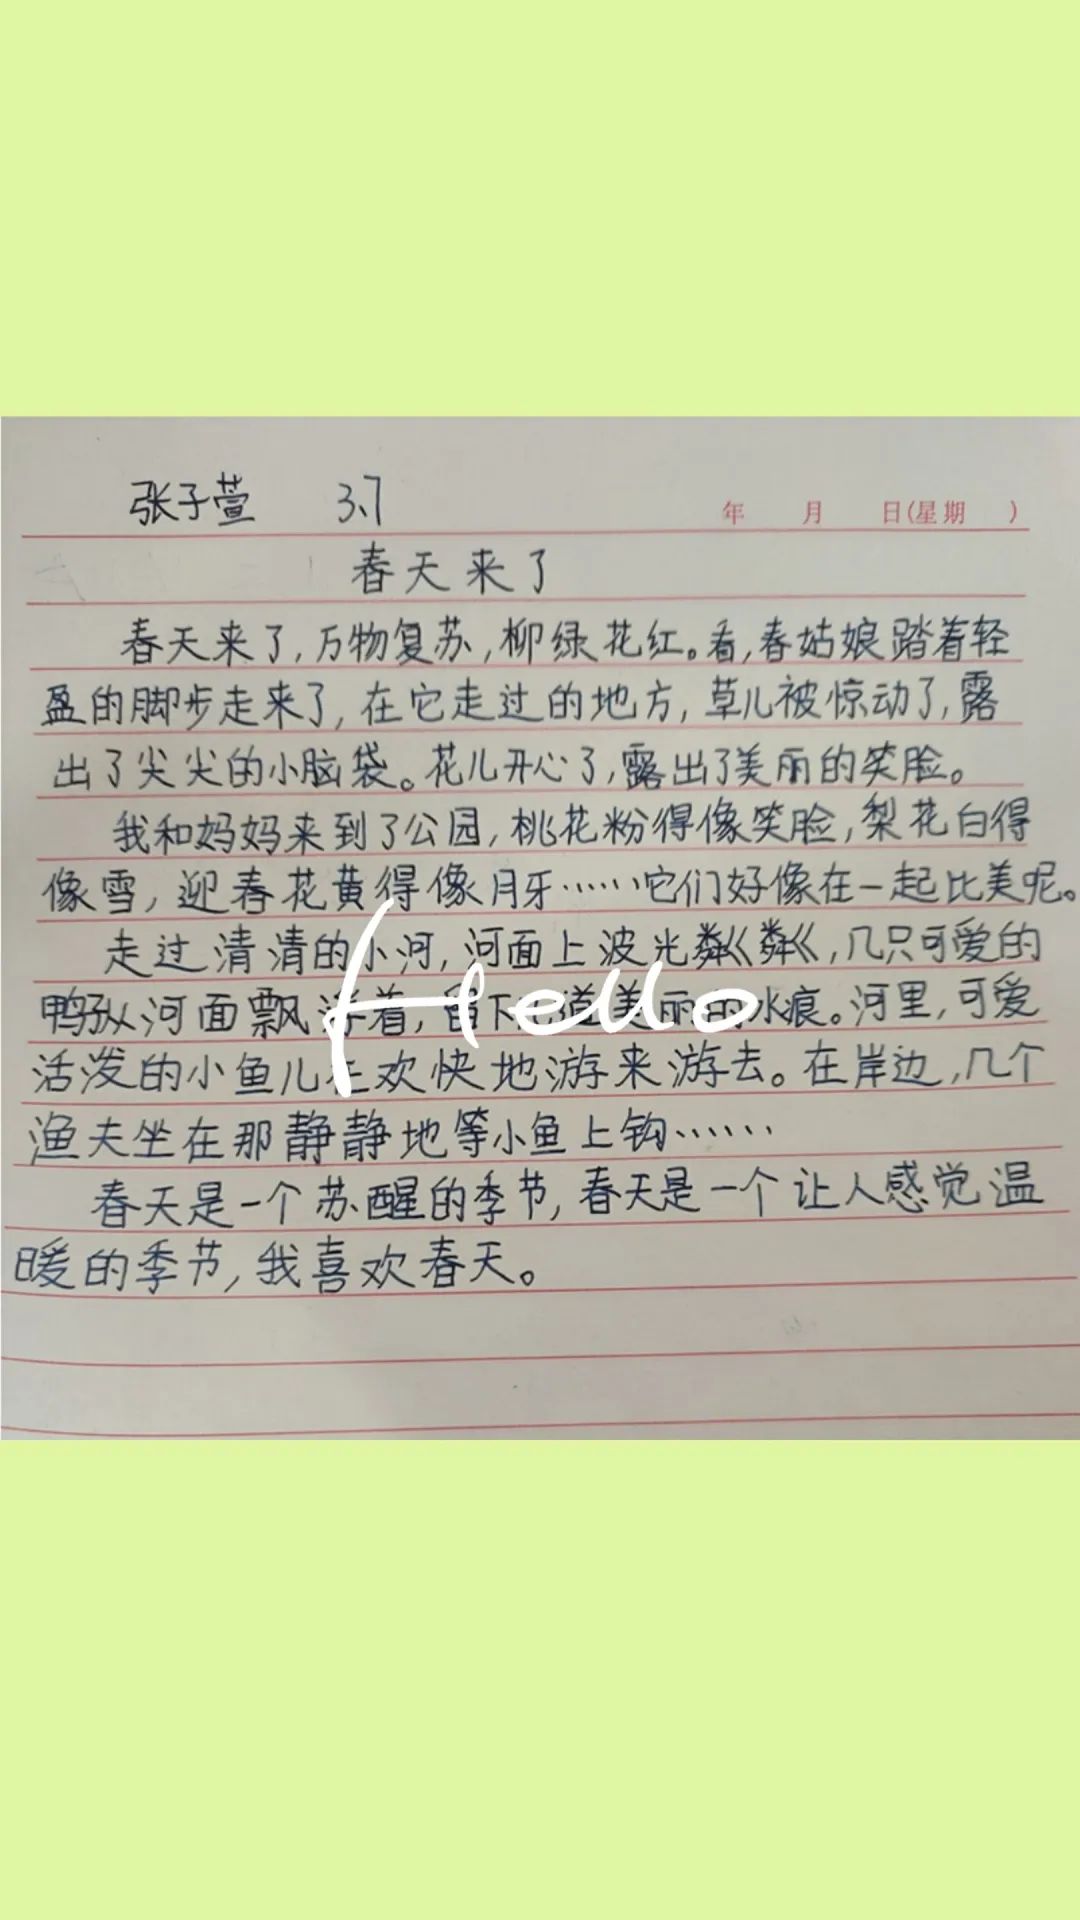 张子萱 3.7
年 月 日(星期 )
春天来了
春天来了,万物复苏,柳绿花红。看,春姑娘踏着轻
盈的脚步走来了,在它走过的地方,草儿被惊动了,露
出了尖尖的小脑袋。花儿开心了,露出了美丽的笑脸。
我和妈妈来到了公园,桃花粉得像笑脸,梨花白得
像雪,迎春花黄得像月牙……它们好像在一起比美呢。
走过清清的小河,河面上波光粼粼,几只可爱的
鸭 河面飘浮着,留下 道美丽的水痕。河里,可爱
活泼的小鱼儿在欢快地游来游去。在岸边,几个
渔夫坐在那静静地等小鱼上钩……
春天是一个苏醒的季节,春天是一个让人感觉温
暖的季节,我喜欢春天。
Hello